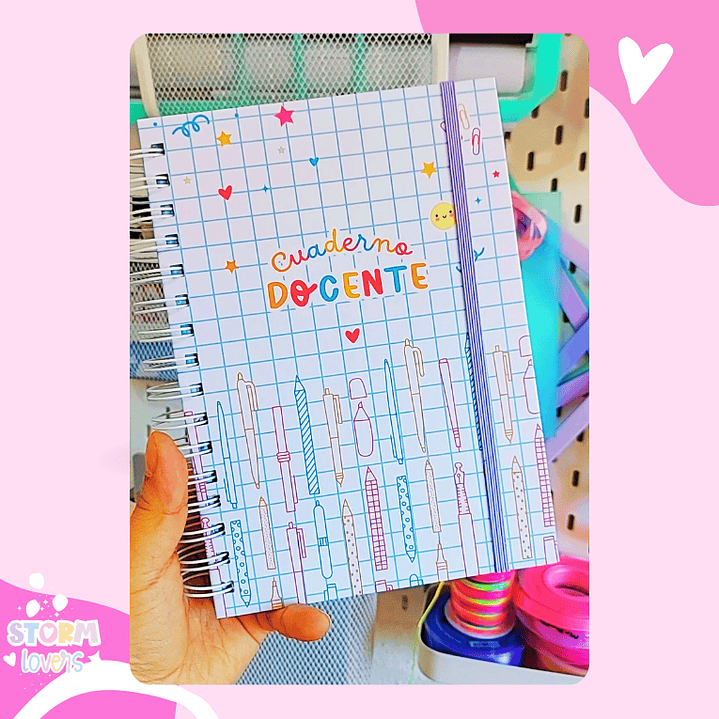 cuaderno
DOCENTE
STORM
lovers